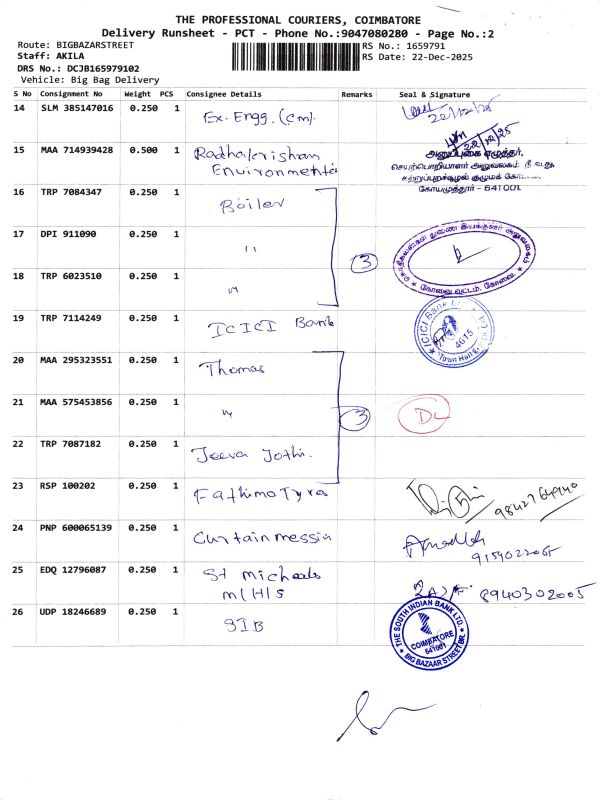 THE PROFESSIONAL COURIERS, COIMBATORE
Delivery Runsheet - PCT - Phone No.:9047080280 - Page No.:2
Route: BIGBAZARSTREET
RS No.: 1659791
Staff: AKILA
RS Date: 22-Dec-2025
DRS No.: DCJB165979102
Vehicle: Big Bag Delivery
S No Consignment No Weight PCS Consignee Details Remarks Seal & Signature
14 SLM 385147016 0.250 1 Ex. Engg. (cm) 22/12/25
15 MAA 714939428 0.500 1 Radhakrishnan
Environmental
22/12/25
அனுப்புகை எழுத்தர்,
செயற்பொறியாளர் அலுவலகம்
கோயமுத்தூர் - 641001.
16 TRP 7084347 0.250 1 Boiler
17 DPI 911090 0.250 1 "
3
18 TRP 6023510 0.250 1 "
19 TRP 7114249 0.250 1 ICICI Bank
ICICI Bank
4615
Town Hall
20 MAA 295323551 0.250 1 Thomas
21 MAA 575453856 0.250 1 "
3
22 TRP 7087182 0.250 1 Jeeva Jothi.
23 RSP 100202 0.250 1 Fathima Tyres
24 PNP 600065139 0.250 1 Curtain messia
9154022065
25 EDQ 12796087 0.250 1 St micheals
m/H/S
8940302005
26 UDP 18246689 0.250 1 SIB
THE SOUTH INDIAN BANK LTD.
COIMBATORE
641001
BIG BAZAAR STREET BR.